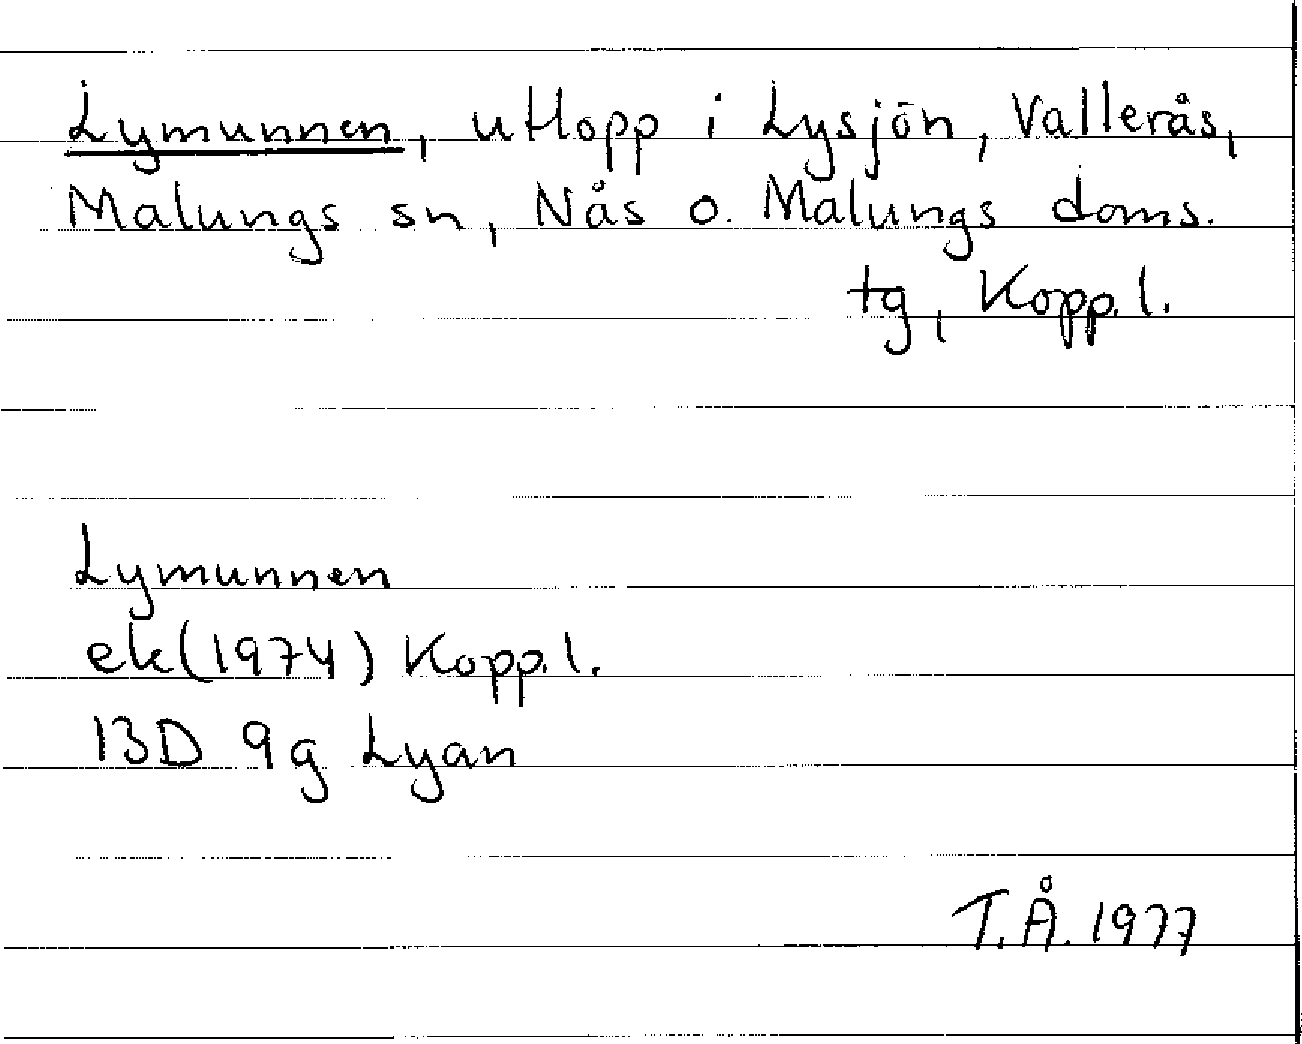 Lymunnen, utlopp i Lysjön, Vallerås,
Malungs sn, Nås o. Malungs doms.
tg, Kopp. l.
Lymunnen
ek (1974) Kopp. l.
13D 9g Lyan
T.Å. 1977